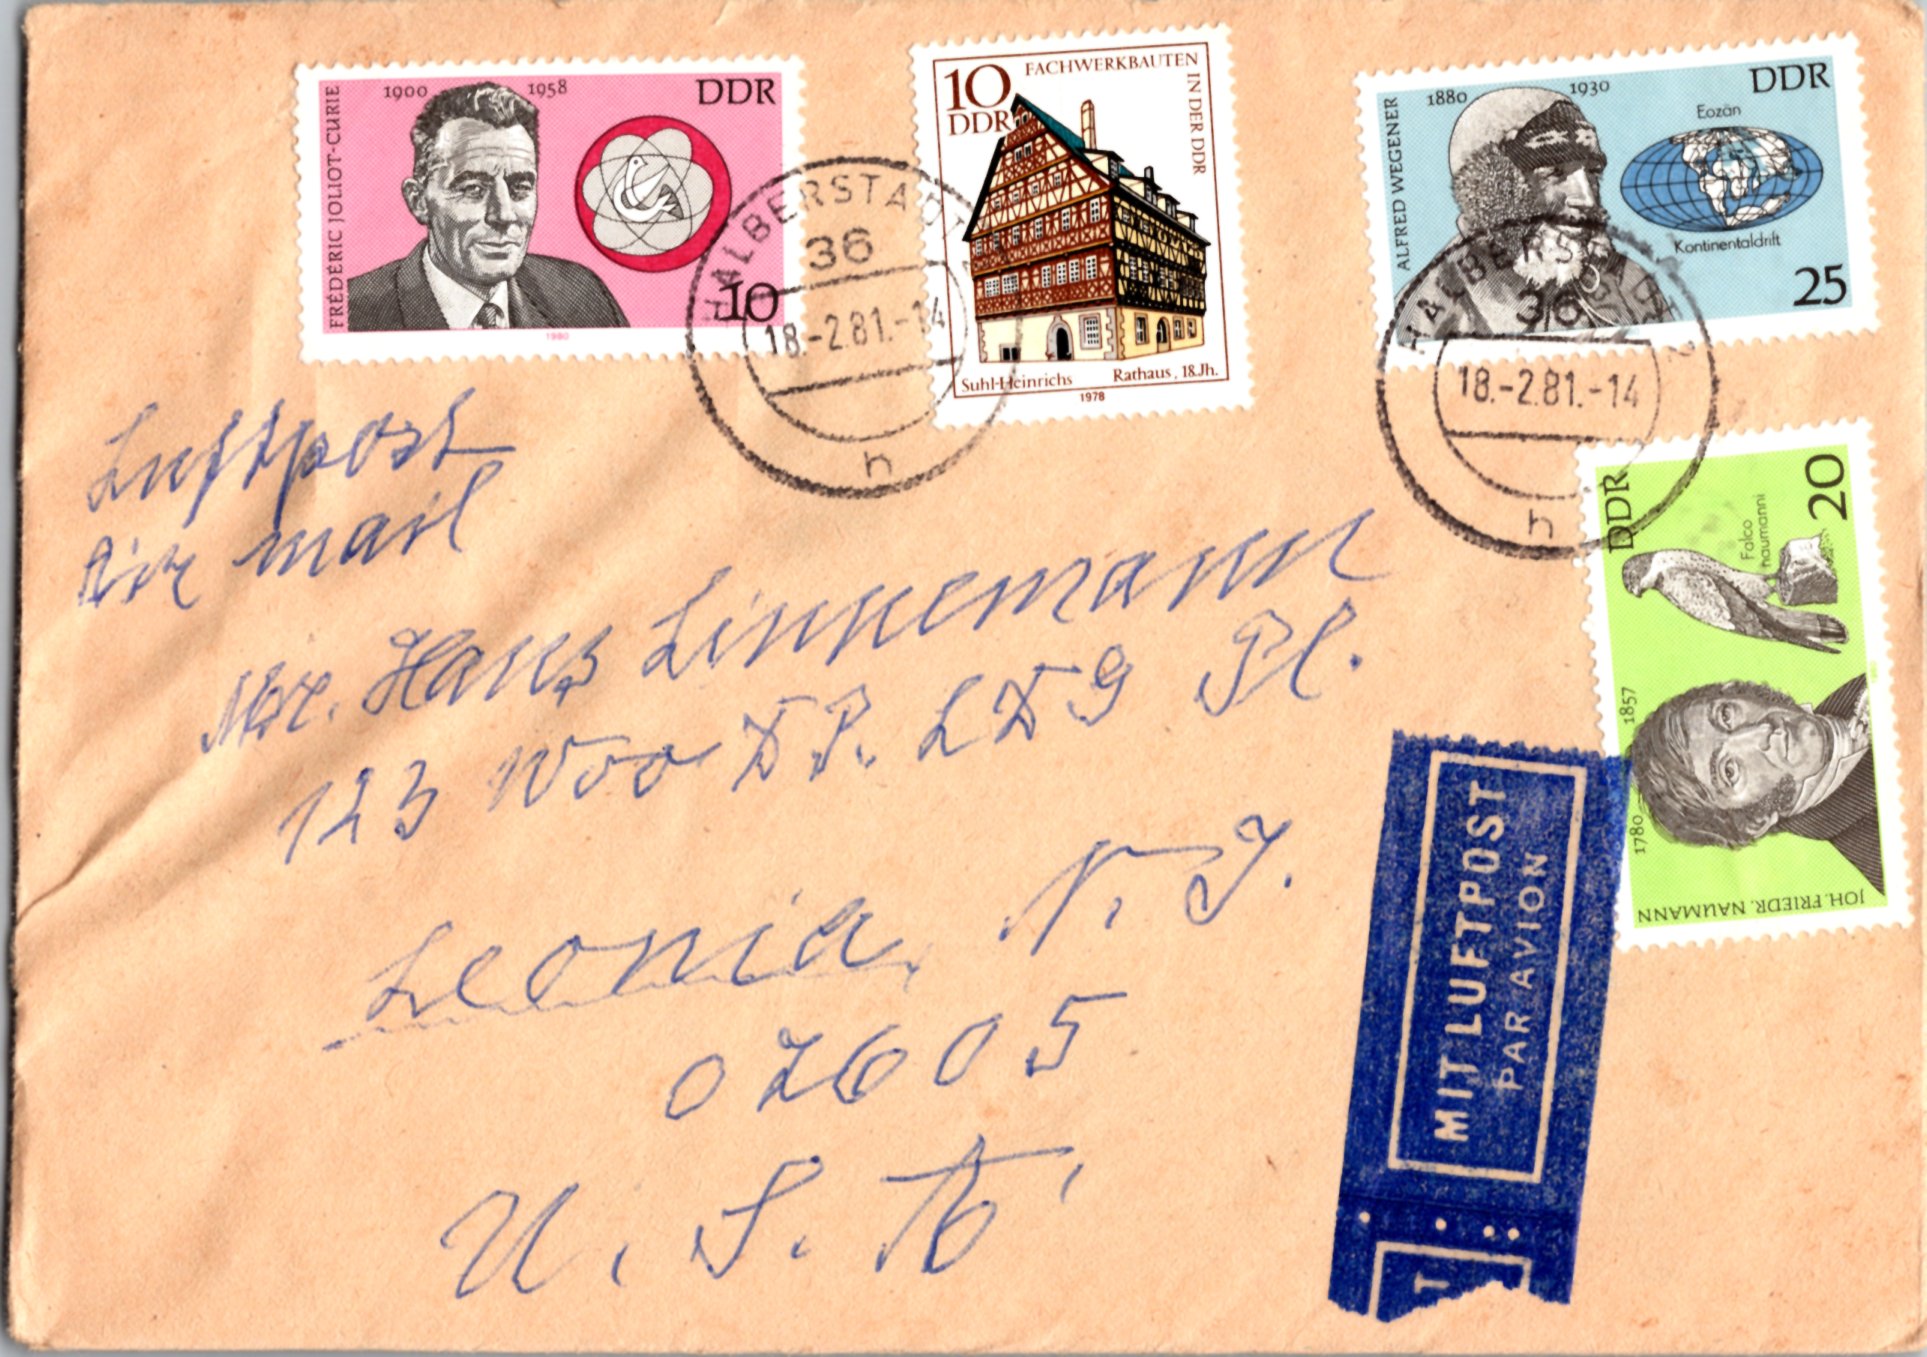 FRÉDÉRIC JOLIOT-CURIE
1900 1958
DDR
10
1980
10
DDR
FACHWERKBAUTEN
IN DER DDR
Suhl-Heinrichs Rathaus, 18.Jh.
1978
ALFRED WEGENER
1880 1930
DDR
Eozän
Kontinentaldrift
25
HALBERSTADT
36
18.-2.81.-14
h
HALBERSTADT 2
36
18.-2.81.-14
h
DDR
20
Falco
naumanni
1780 1857
JOH. FRIEDR. NAUMANN
Luftpost
Air mail
Mr. Hans Linnemann
123 Woo
Pl.
Leonia, N. J.
07605
U. S. A.
MIT LUFTPOST
PAR AVION
T